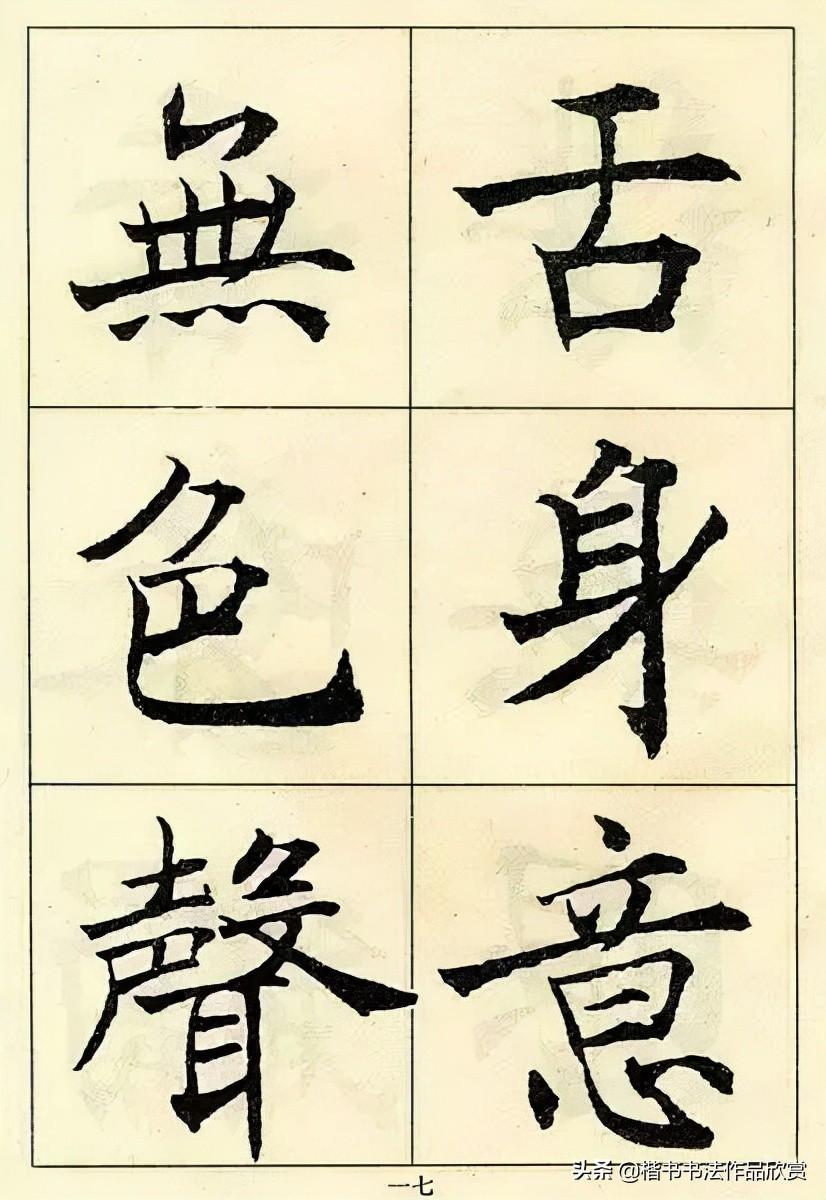 舌身意
無色聲
一七
头条 @楷书书法作品欣赏